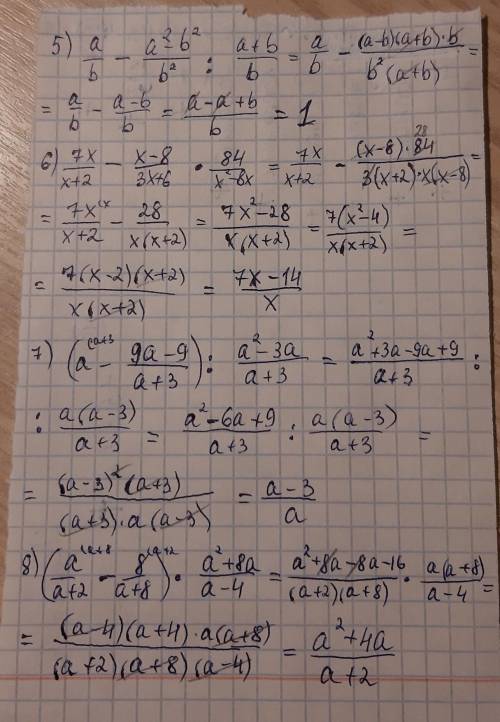 5) a/b - (a²-b²)/b² : (a+b)/b = a/b - ((a-b)(a+b)·b)/(b²(a+b)) =
= a/b - (a-b)/b = (a-a+b)/b = 1
6) 7x/(x+2) - (x-8)/(3x+6) · 84/(x²-8x) = 7x/(x+2) - ((x-8)·84 28)/(3(x+2)·x(x-8)) =
= 7x^(x/(x+2) - 28/(x(x+2)) = (7x²-28)/(x(x+2)) = 7(x²-4)/(x(x+2)) =
= 7(x-2)(x+2)/(x(x+2)) = (7x-14)/x
7) (a^(a+3 - (9a-9)/(a+3)) : (a²-3a)/(a+3) = (a²+3a-9a+9)/(a+3) :
: a(a-3)/(a+3) = (a²-6a+9)/(a+3) : a(a-3)/(a+3) =
= (a-3)²(a+3)/((a+3)·a(a-3)) = (a-3)/a
8) (a^(a+8/(a+2) - 8^(a+2/(a+8)) · (a²+8a)/(a-4) = (a²+8a-8a-16)/((a+2)(a+8)) · a(a+8)/(a-4) =
= (a-4)(a+4)·a(a+8)/((a+2)(a+8)(a-4)) = (a²+4a)/(a+2)